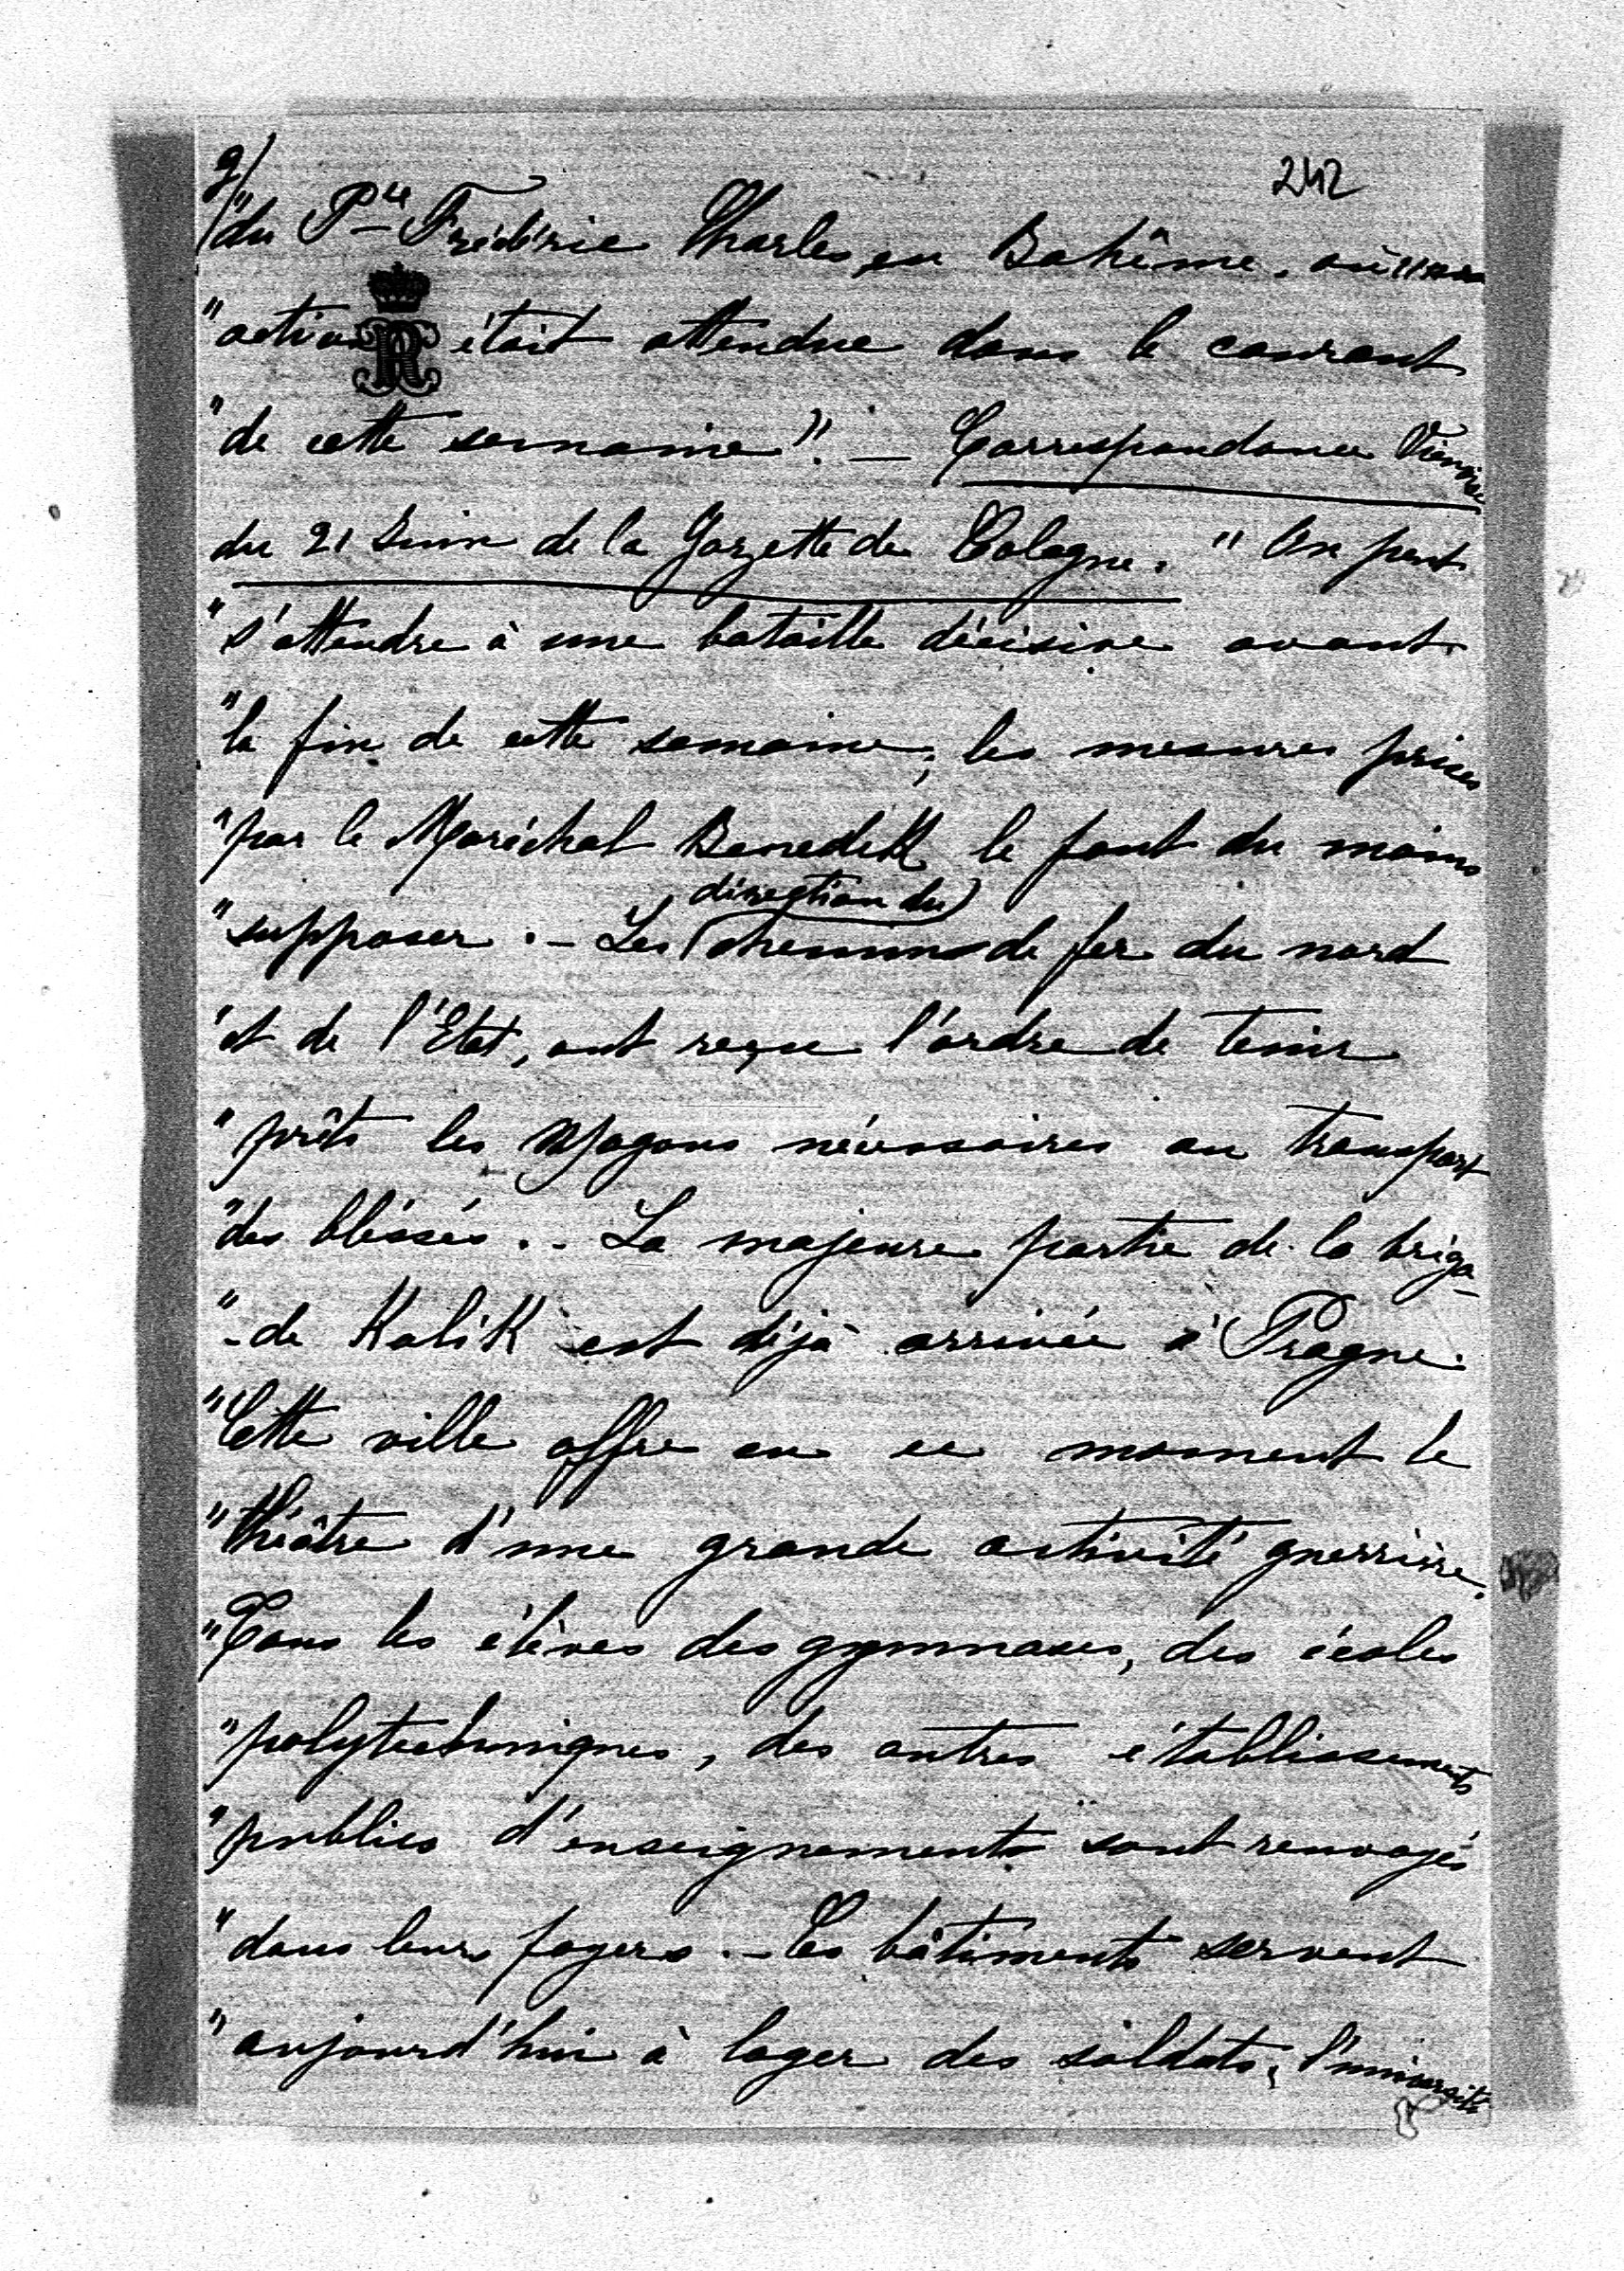 2/
242
"du P^ce Frédéric Charles, en Bohême, où une
"action était attendue dans le courant
"de cette semaine". — Correspondance Viennoise
du 21 Juin de la Gazette de Cologne. "On peut
"s'attendre à une bataille décisive avant
"la fin de cette semaine; les mesures prises
"par le Maréchal Benedekk le font du moins
direction du
"supposer. - Les chemins de fer du nord
"et de l'Etat, ont reçu l'ordre de tenir
"prêts les Wagons nécessaires au transport
"des bléssés. - La majeure partie de la briga-
"-de KaliK est déjà arrivée à Prague.
"Cette ville offre en ce moment le
"théâtre d'une grande activité guerrière.
"Tous les élèves des gymnases, des écoles
"polytechniques, des autres établissements
"publics d'enseignements sont renvoyés
"dans leurs foyers. - Ces bâtiments servent
"aujourd'hui à loger des soldats; l'université